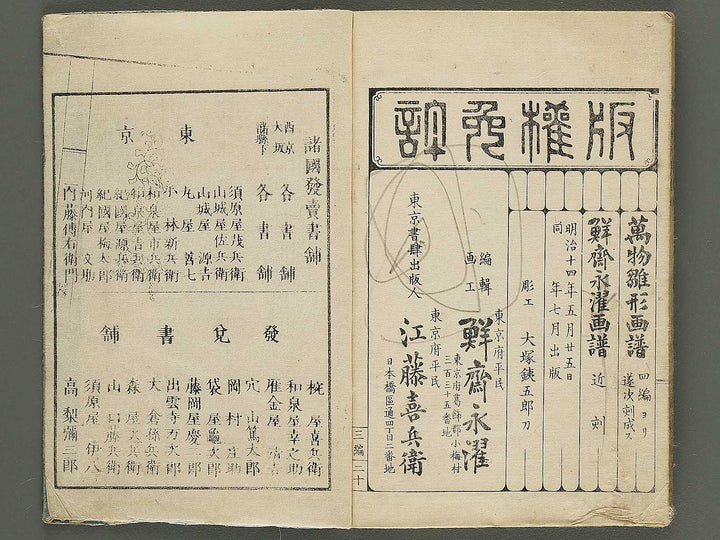 版權免許
萬物雛形画譜 四編ヨリ遂次刺成ス
鮮齋永濯画譜 近刻
明治十四年五月廿五日
同 年七月出版
彫工 大塚鉄五郎刀
東京府平民
編輯画工 鮮齋永濯
東京府葛飾郡小梅村
三百三十五番地
東京府平民
東京書肆出版人 江藤喜兵衛
日本橋區通四丁目一番地
三編 二十
諸國發賣書舗
西京 大坂 各書舗
諸縣下 各書舗
東京
須原屋茂兵衛
山城屋佐兵衛
山城屋源吉
丸屋善七
小林新兵衛
和泉屋市兵衛
和泉屋吉兵衛
紀國屋源兵衛
紀國屋梅太郎
河内屋文助
内藤傳右衛門
發兌書舗
椀屋喜兵衛
和泉屋幸之助
雁金屋清吉
穴山篤太郎
岡村庄助
袋屋亀次郎
藤岡屋慶二郎
出雲寺万次郎
大倉孫兵衛
森屋次兵衛
山口藤兵衛
須原屋伊八
高梨彌三郎